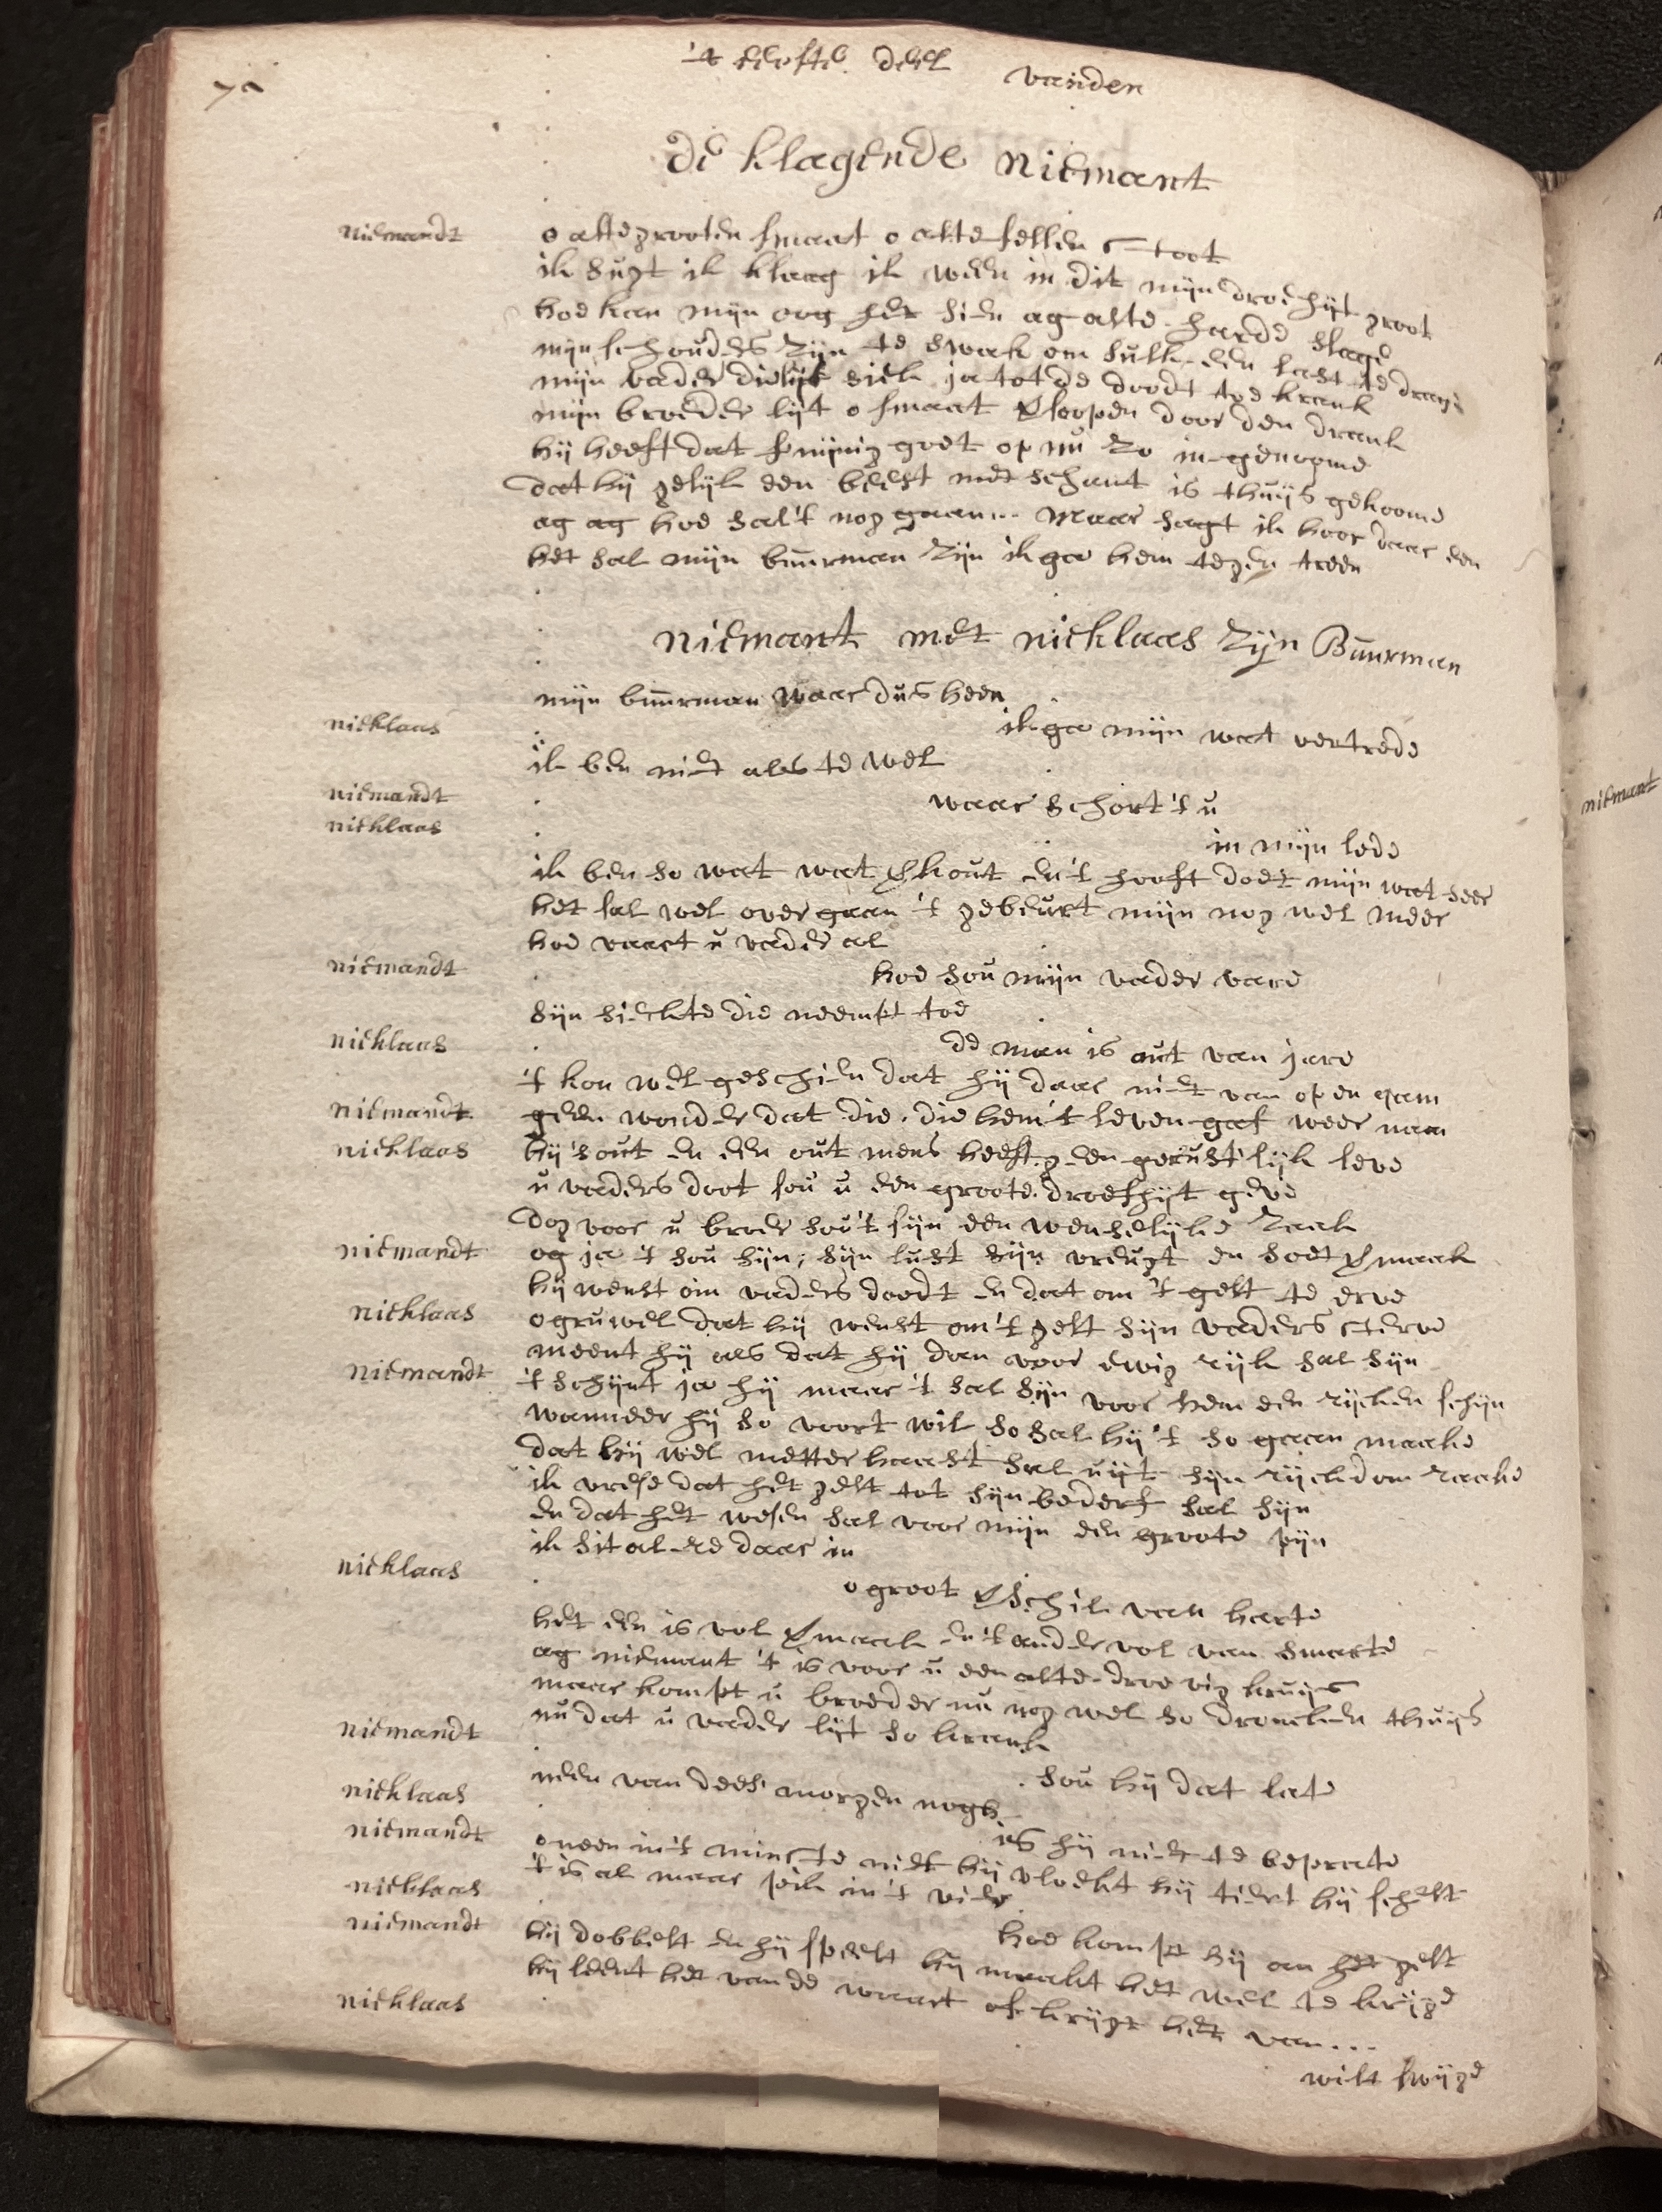 't eerste deel vanden
de klagende niemant
niemandt o alte grooten smaat o alte fellen stoot
ik sugt ik klaag ik ween in dit mijn droefhijt groot
hoe kan mijn oog het sien ag alte harde slage
mijn schouders zijn te swak om sulk een last te drage
mijn vader die lijt siek ja tot de doodt toe krank
mijn broeder lijt o smaat versoopen door den drank
hij heeft dat fenijnig goet op nu zo in genoome
dat hij gelijk een beest met schant is thuijs gekoome
ag ag hoe sal't nog gaan... maar sagt ik hoor daar een
het sal mijn buurman zijn ik ga hem tegen treen
niemant met nicklaas zijn Buurman
mijn buurman waar dus heen
nicklaas ik ga mijn wat vertrede
ik ben niet als te wel
niemandt waar schort 't u
nicklaas in mijn lede
ik ben so wat wat verkout en't hooft doet mijn wat seer
het sal wel over gaan 't gebeurt mijn nog wel meer
hoe vaart u vader al
niemandt hoe sou mijn vader vare
sijn sieckte die neempt toe
nicklaas de man is out van jare
't kon wel geschien dat hij daar niet van op en quam
niemandt geen wonder dat die, die hem't leven gaf weer nam
nicklaas hij's out en een out mens heeft geen gerust'lijk leve
u vaders doot sou u een groote droefhijt geve
dog voor u broer sou't sijn een wenselijke zaak
niemandt og ja 't sou sijn; sijn lust sijn vreugt en soet vermaak
hij wenst om vaders doodt en dat om 't gelt te erve
nicklaas o gruwel dat hij wenst om't gelt sijn vaders sterve
meent hij als dat hij dan voor ewig rijk sal sijn
niemandt 't schijnt ja hij maar 't sal sijn voor hem een rijcken schijn
wanneer hij so voort wil so sal hij 't so gaan maake
dat hij wel metter haast sal uijt sijn rijckdom raake
ik vrese dat het gelt tot sijn bederf sal sijn
en dat het wesen sal voor mijn een groote pijn
ik sit al ree daar in
nicklaas o groot verschil van harte
het een is vol vermaak en't ander vol van smarte
ag niemant 't is voor u een alte droevig kruijs
maar kompt u broeder nu nog wel so droncken thuijs
nu dat u vader lijt so krank
niemandt sou hij dat late
neen van dees' morgen nogh
nicklaas is hij niet te beprate
niemandt o neen in't minste niet hij vloekt hij tiert hij schelt
't is al maar peck in't vier
nicklaas hoe kompt hij om het gelt
niemandt hij dobbelt en hij speelt hij maakt het wel te krijge
hij leent het van de waart of krijgt het van...
nicklaas wilt swijge
niemant